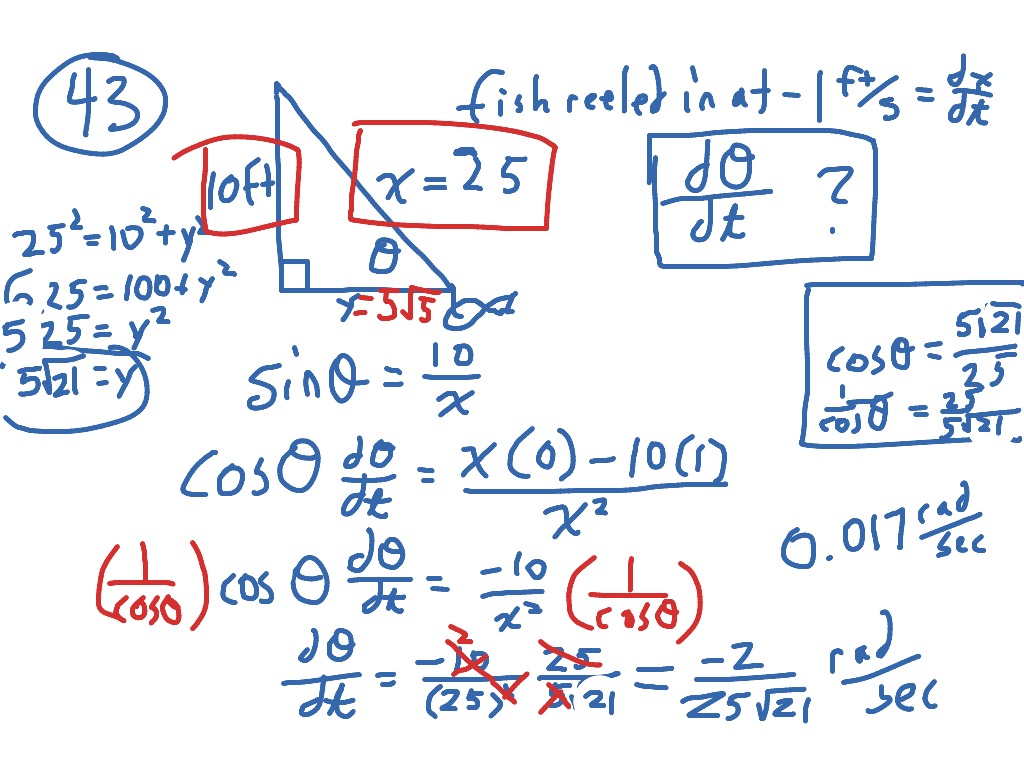 43
fish reeled in at -1 ft/s = dx/dt
10ft
x = 25
dθ/dt ?
25² = 10² + y²
625 = 100 + y²
525 = y²
5√21 = y
θ
y = 5√5
sinθ = 10/x
cosθ = 5√21/25
1/cosθ = 25/5√21
cosθ dθ/dt = x(0) - 10(1)/x²
0.017 rad/sec
(1/cosθ) cosθ dθ/dt = -10/x² (1/cosθ)
dθ/dt = -10/(25)² 25/5√21 = -2/25√21 rad/sec
2